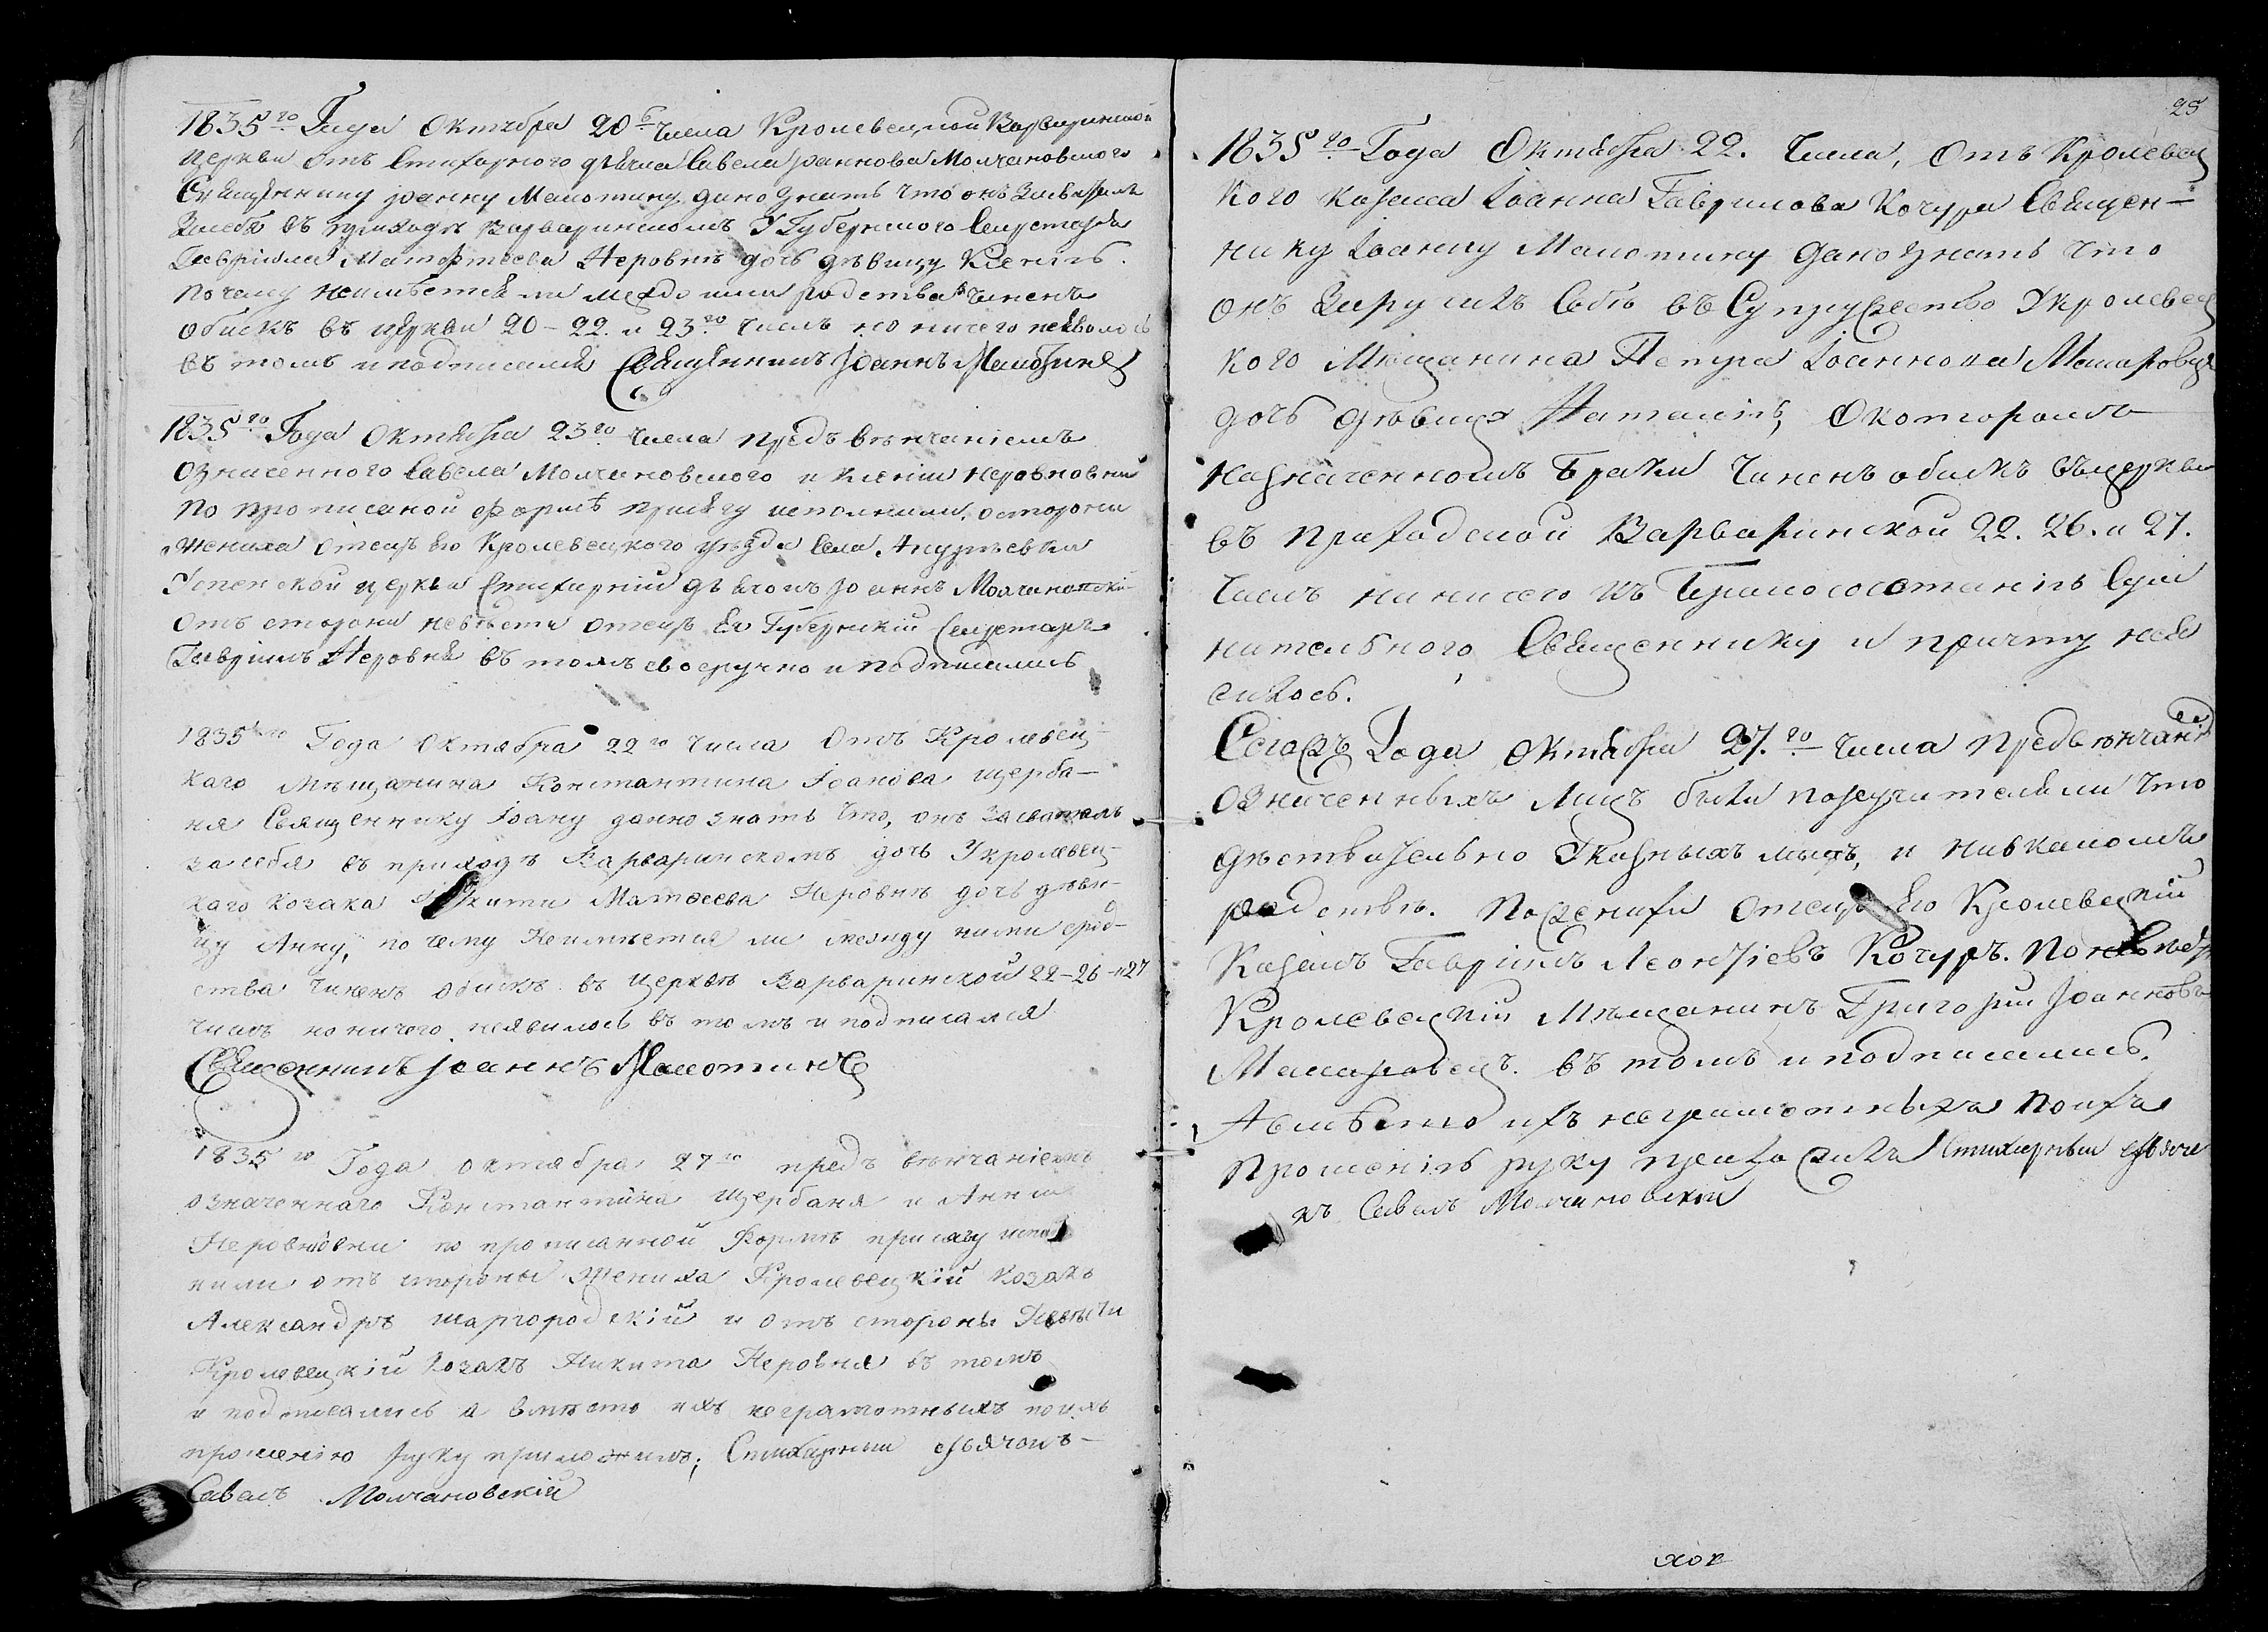 1835го Года Октебра 20г Числа Кролевецкой Варваринской
Церкви отъ Стихарного дьячка Савела Іоаннова Молчановского
Священнику Іоанну Малотину дано знать что онъ Засваталъ
Засебя въ приходѣ Варваринскомъ У Губернского Секретаря
Гавріила Матфѣева Неровнѣ дочь дѣвицу Ксенію.
Почему неимѣется ли между ими родства Чиненъ
обискъ въ церкви 20-22 и 23го Числъ но ничего неявилось
въ томъ и подписался Священникъ Іоаннъ Малотинъ
1835го Года Октября 23го Числа предъ вѣнчаніемъ
Означенного Савела Молчановского и Ксеніи Неровновни
По прописаной формѣ присягу исполнили. осторони
Жениха Отецъ Его Кролевецкого уѣзда Села
Успенской церкви Стихарній дьячокъ Іоаннъ Молчановскій
Отъ сторони невѣсти отецъ Ея Губернскій Секретарь
Гавріилъ Неровня въ томъ своеручно и подписались
1835го Года Октября 22го Числа Отъ Кролевец-
каго Мѣщанина Константина Іоанова Щерба-
ня Священнику Іоану данно знать Что, онъ Засваталъ
засебя въ приходѣ Варваринскомъ дочь Укролевец-
каго козака Никити Матѳеева Неровнѣ дочь дѣви-
цу Анну, по чему Неимѣется ли между ними срод-
ства Чиненъ обискъ въ Церквѣ Варваринской 22-26-и27
Числъ но ничего неявилось въ томъ и подписался
Священникъ Іоаннъ Малотинъ
1835го Года октября 27го предъ вѣнчаніемъ
означеннаго Константина Щербаня и Анни
Неровновни по прописанной Формѣ присягу
нили отъ стороны Жениха Кролевецкій козакъ
Александръ Шаргородскій и отъ стороны Невѣсти
Кролевецкій козакъ Никита Неровня въ томъ
и подписались а вмѣсто ихъ неграмотныхъ по ихъ
прошенію руку приложилъ; Стихарный дьячокъ-
Савелъ Молчановскій
25
1835го Года Октября 22. Числа, Отъ Кролевец
кого казака Іоанна Гаврилова Кочура Священ-
нику Іоанну Малотину дано знать что
онъ Заручилъ Себѣ въ Супружество Укролевец
кого Мѣщанина Петра Іоаннова Макаровца
дочь дѣвицу Наталію, Окоторомъ
назначенномъ Браки Чиненъ обискъ въцеркви
въ Приходской Варваринской 22. 26. и 27.
Числъ ни ничего къ Бракосочетанію Сум
нительного Священнику и причту неяв
силось.
Сегожъ Года Октября 27.го Числа Предвѣнчаніе
Означенныхъ Лицъ были поручителями Что
дѣствительно и нивкакомъ
родствѣ. Поженихи Отецъ Его Кролевецкій
Казакъ Гавріилъ Леонтіевъ Кочуръ. По невѣстѣ
Кролевецкій Мѣщанинъ Григорій Іоанновъ
Макаровецъ. въ томъ и подписались.
Авмѣсто ихъ неграмотныхъ Поихъ
Прошенію руку приложилъ Стихарный дьячо
къ Савелъ Молчановскій